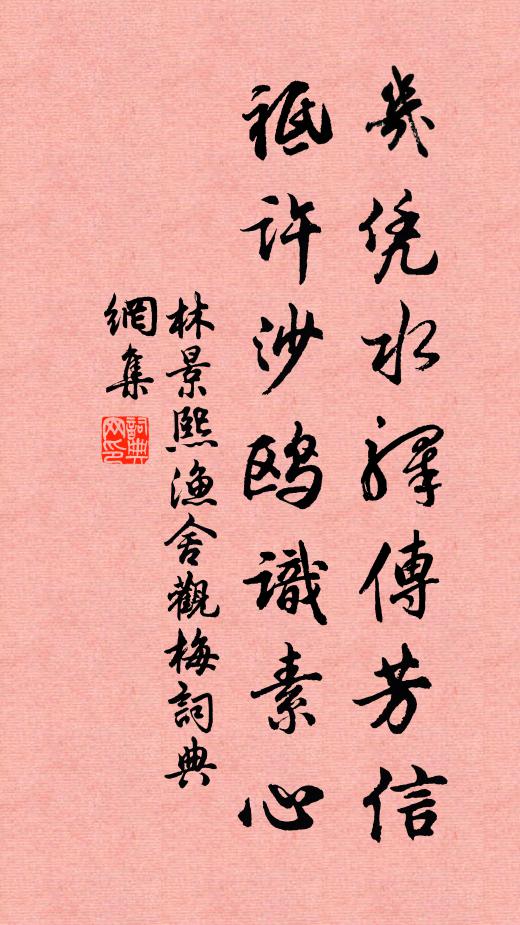 幾凭水驛傳芳信
祗許沙鸥識素心
林景熙漁舍觀梅詞典
網集
詞典網印